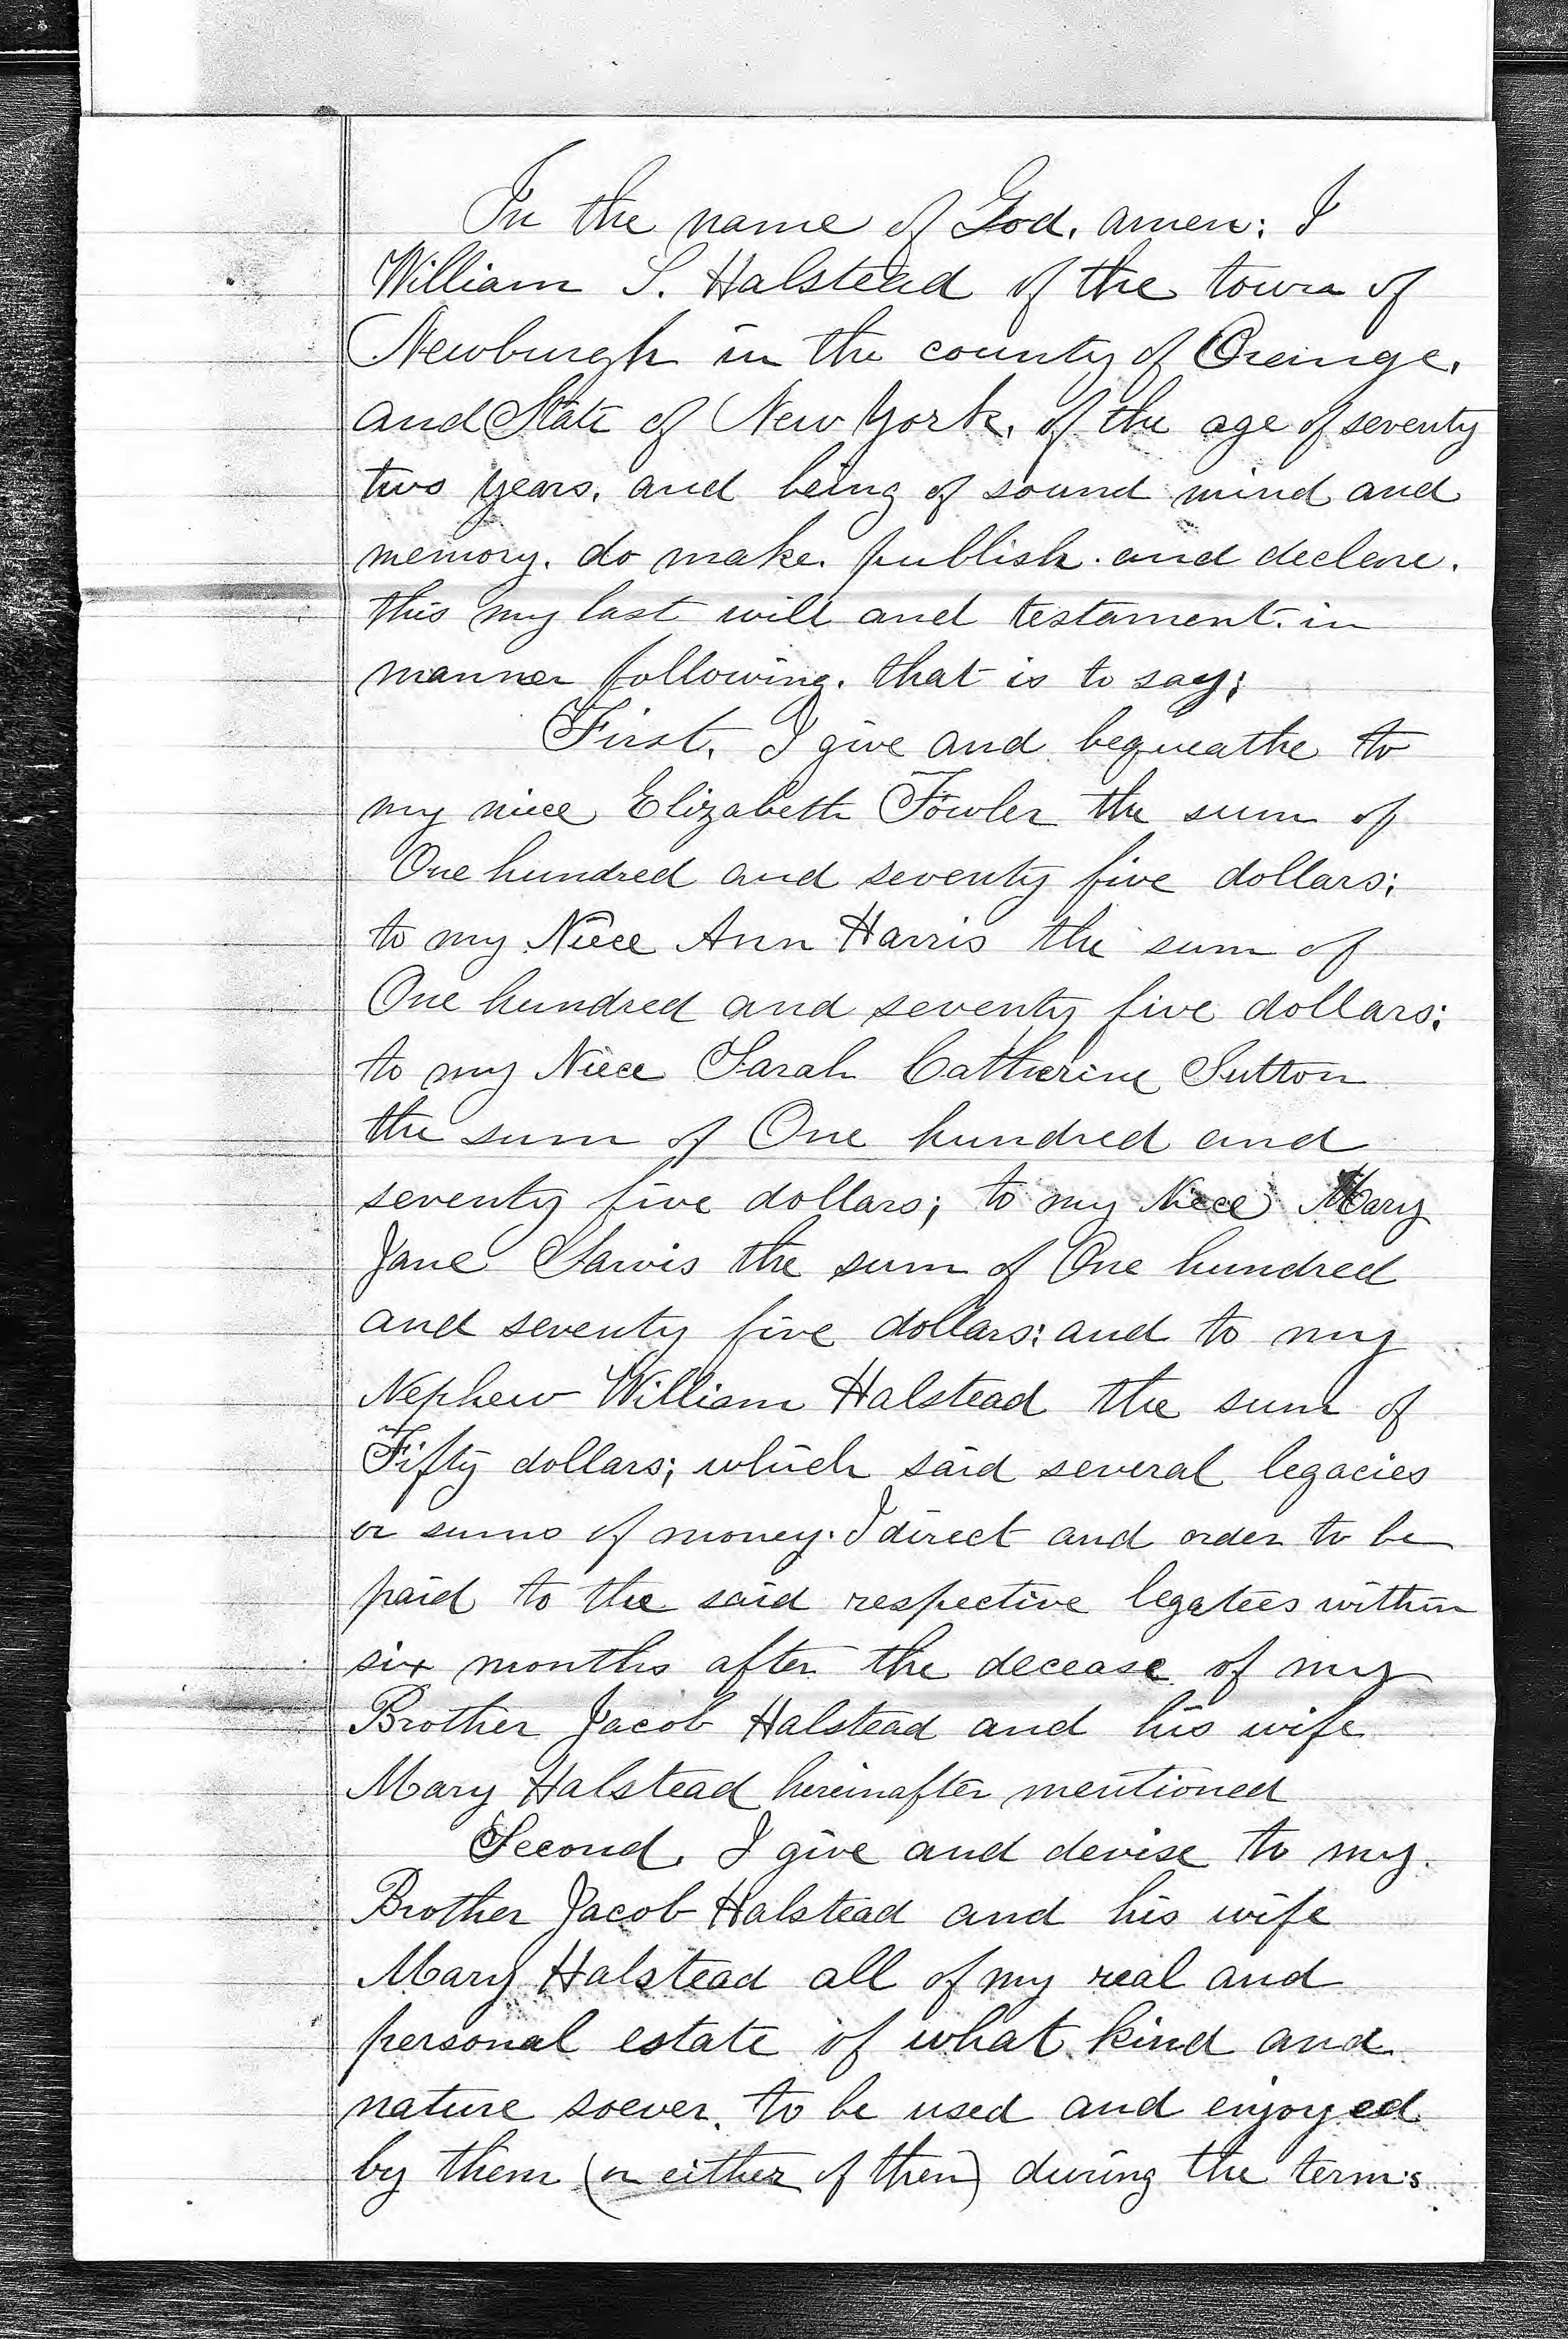 In the name of God, amen: I
William S. Halstead of the town of
Newburgh in the county of Orange,
and State of New York, of the age of seventy
two years, and being of sound mind and
memory, do make, publish and declare,
this my last will and testament in
manner following, that is to say;
First, I give and bequeathe to
my niece Elizabeth Fowler the sum of
One hundred and seventy five dollars;
to my Niece Ann Harris the sum of
One hundred and seventy five dollars;
to my Niece Sarah Catherine Sutton
the sum of One hundred and
seventy five dollars; to my Niece Mary
Jane the sum of One hundred
and seventy five dollars; and to my
Nephew William Halstead the sum of
Fifty dollars; which said several legacies
or sums of money I direct and order to be
paid to the said respective legatees within
six months after the decease of my
Brother Jacob Halstead and his wife
Mary Halstead hereinafter mentioned
Second, I give and devise to my
Brother Jacob Halstead and his wife
Mary Halstead all of my real and
personal estate of what kind and
nature soever, to be used and enjoyed
by them (or either of them) during the terms